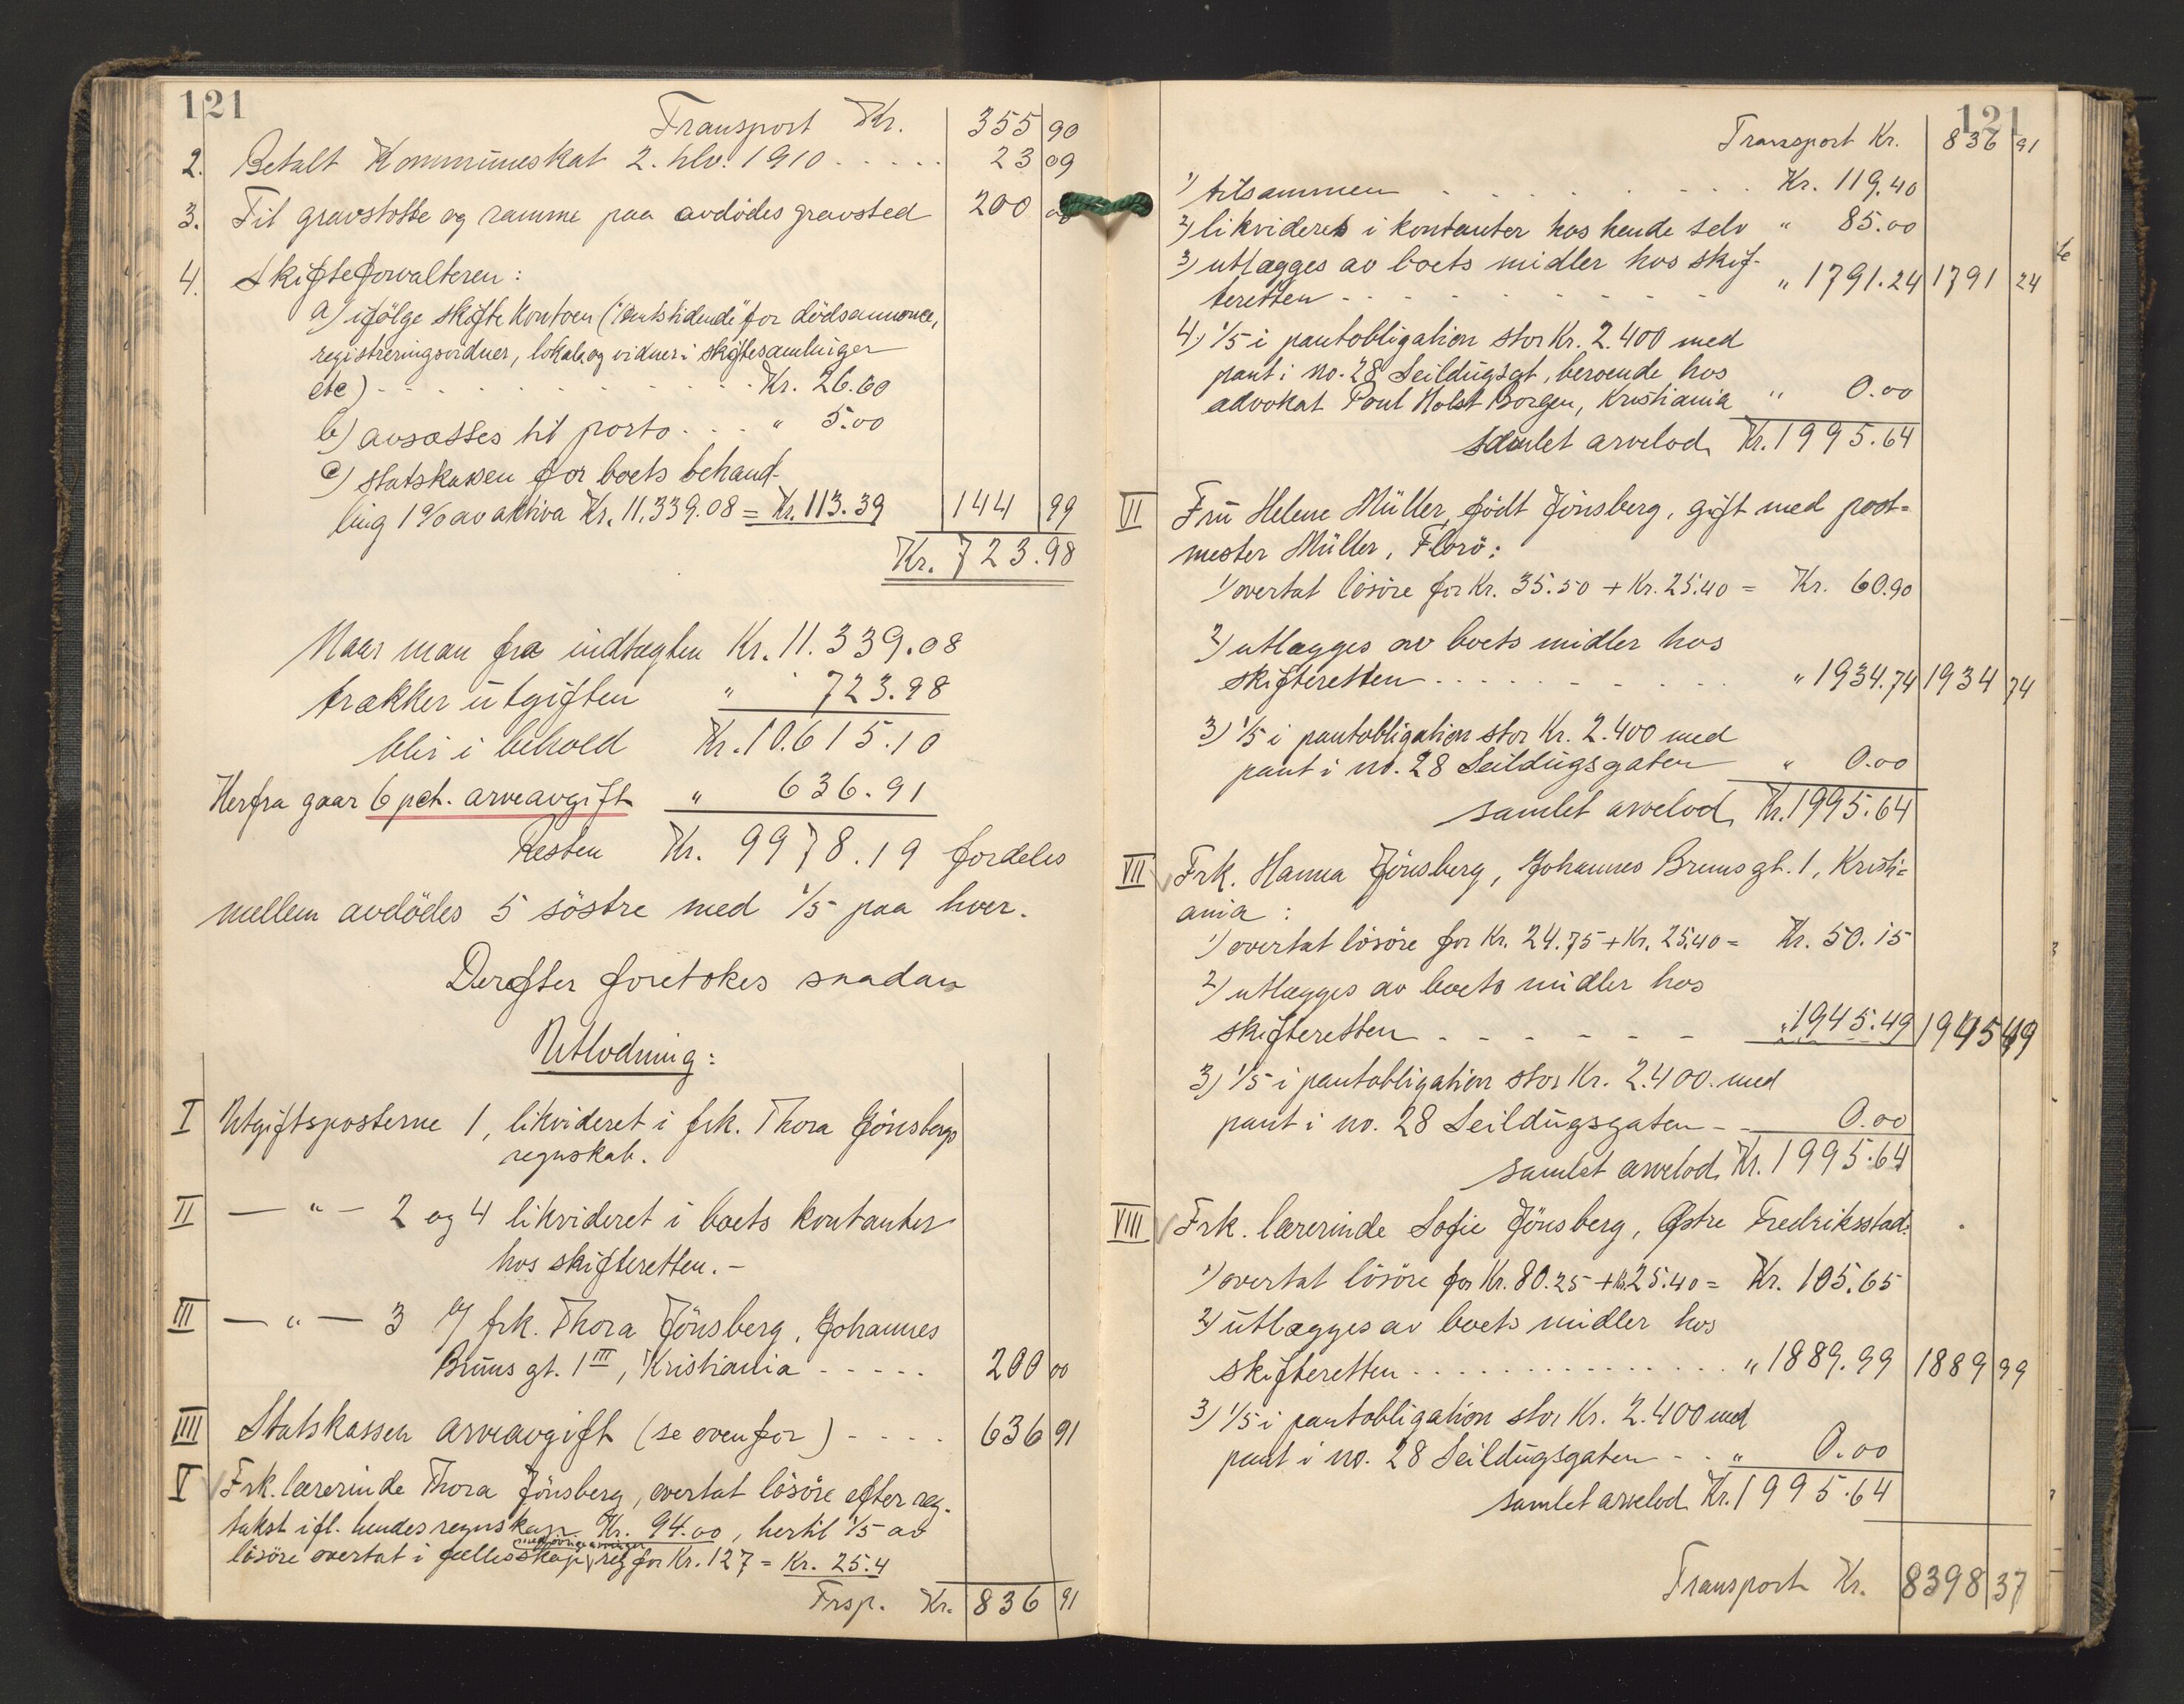 121
Transport Kr. 355 90
2. Betalt Kommuneskat 2. hlv. 1910 . . . . . 23 09
3. Til gravstøtte og ramme paa avdödes gravsted 200 00
4. Skifteforvalteren:
a) ifölge skifte kontoen ("Amtstidende" for dödsannonce,
registreringsvidner, lokale og vidner i skiftesamlinger
etc) . . . . . Kr. 26.60
b) avsættes til porto . . . " 5.00
c) statskassen for boets behand-
ling 1% av aktiva Kr. 11.339.08 = Kr. 113.39 144 99
Kr. 723.98
Naar man fra indtægten Kr. 11.339.08
trækker utgiften " 723.98
blir i behold Kr. 10.615.10
Herfra gaar 6 pct. arveavgift " 636.91
Resten Kr. 9978.19 fordeles
mellem avdödes 5 söstre med 1/5 paa hver.
Derefter foretokes saadan
Utlodning:
I Utgiftsposterne 1, likvideret i frk. Thora Jönsbergs
regnskab.
II — " — 2 og 4 likvideret i boets kontanter
hos skifteretten. -
III — " — 3 T/ frk. Thora Jönsberg, Johannes
Bruns gt. 1 III, Kristiania - - - - - 200 00
IIII Statskassen arveavgift (se ovenfor) - - - - 636 91
V Frk. lærerinde Thora Jönsberg, overtat lösöre efter reg.
takst ifl. hendes regnskap Kr. 94.00, hertil 1/5 av
med övrige arvinger
lösöre overtat i fællesskap reg for Kr. 127 = Kr. 25.4
Trsp. Kr. 836 91
121
Transport Kr. 836 91
1) tilsammen . . . . . Kr. 119.40
2) likvideret i kontanter hos hende selv " 85.00
3) utlægges av boets midler hos skif-
teretten - - - - - " 1791.24 1791 24
4) 1/5 i pantobligation stor Kr. 2.400 med
pant i no. 28 Seildugsgt, beroende hos
advokat Poul Holst Borgen, Kristiania " 0.00
samlet arvelod Kr. 1995.64
VI Fru Helene Müller, födt Jönsberg, gift med post-
mester Müller, Florö:
1) overtat lösöre for Kr. 35.50 + Kr. 25.40 = Kr. 60.90
2) utlægges av boets midler hos
skifteretten . . . . . " 1934.74 1934 74
3) 1/5 i pantobligation stor Kr. 2.400 med
pant i no. 28 Seildugsgaten " 0.00
samlet arvelod Kr. 1995.64
VII Frk. Hanna Jönsberg, Johannes Bruns gt. 1, Kristi-
ania:
1) overtat lösöre for Kr. 24.75 + Kr. 25.40 = Kr. 50.15
2) utlægges av boets midler hos
skifteretten - - - - - " 1945.49 1945 49
3) 1/5 i pantobligation stor Kr. 2.400 med
pant i no. 28 Seildugsgaten - - 0.00
samlet arvelod Kr. 1995.64
VIII Frk. lærerinde Sofie Jönsberg, Østre Fredriksstad:
1) overtat lösöre for Kr. 80.25 + Kr. 25.40 = Kr. 105.65
2) utlægges av boets midler hos
skifteretten . . . . . " 1889.99 1889 99
3) 1/5 i pantobligation stor Kr. 2.400 med
pant i no. 28 Seildugsgaten - - " 0.00
samlet arvelod Kr. 1995.64
Transport Kr. 8398 37